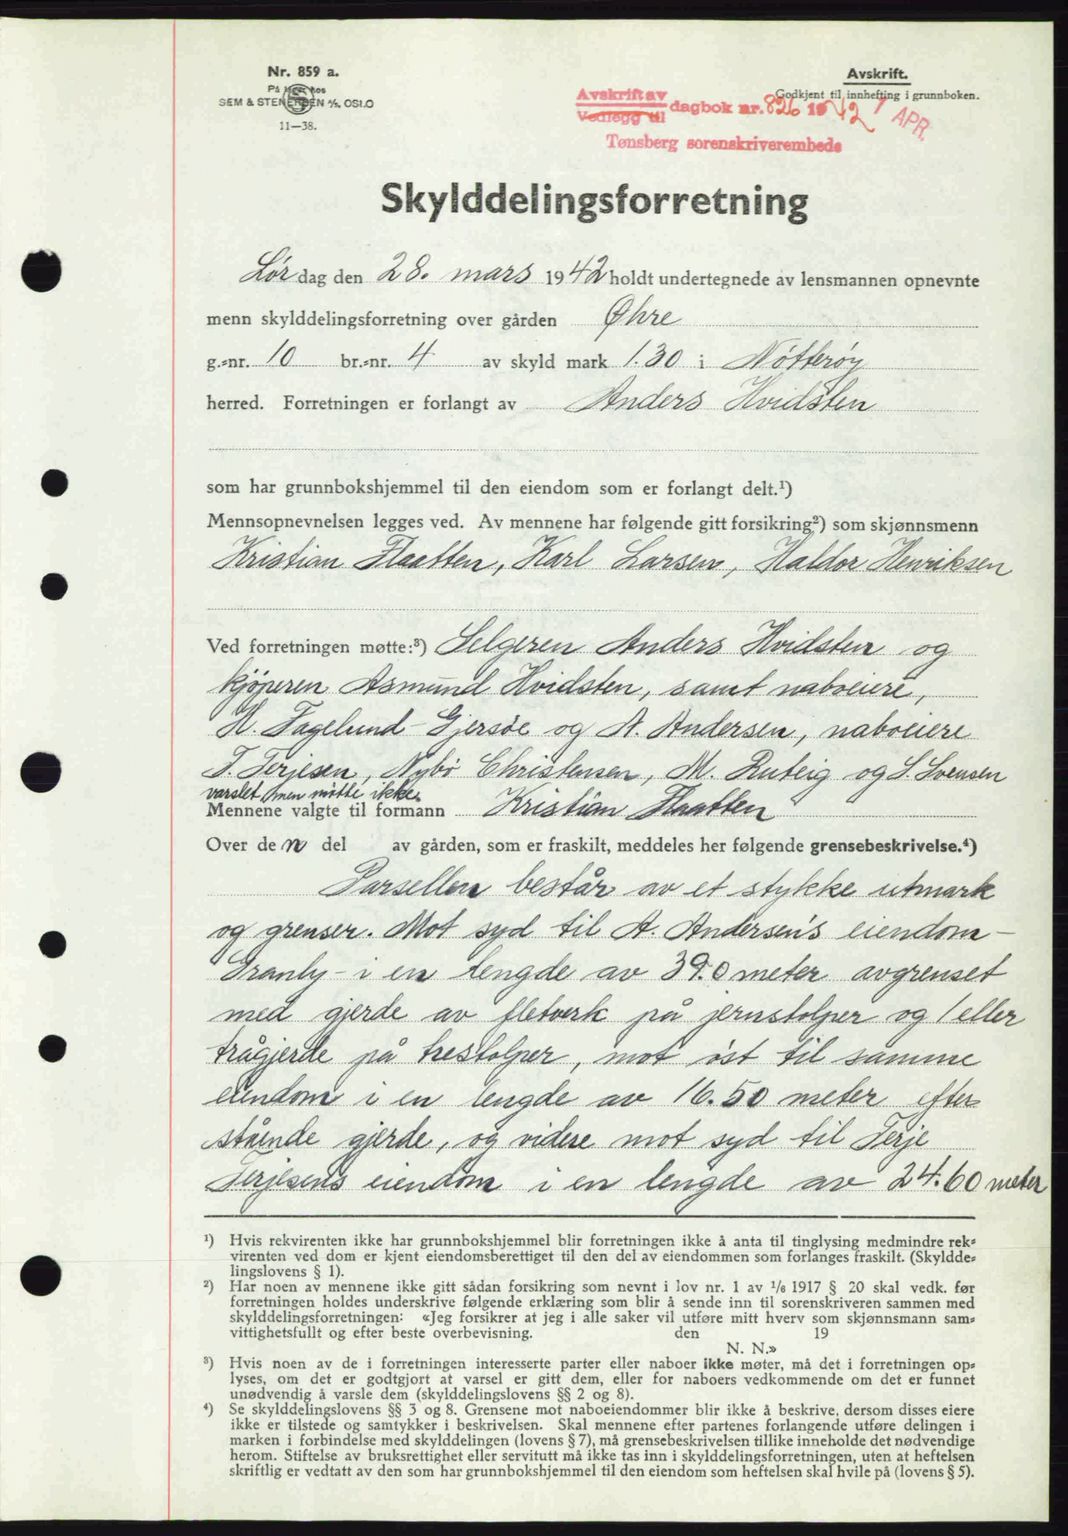 Nr. 859 a.
På lager hos
SEM & STENERSEN A/S, OSLO
11—38.
Avskrift.
Godkjent til innhefting i grunnboken.
Avskrift av
Vedlegg til dagbok nr. 826 1942 1 APR.
Tønsberg sorenskriverembede
Skylddelingsforretning
Lørdag den 28. mars 1942 holdt undertegnede av lensmannen opnevnte
menn skylddelingsforretning over gården Øhre
g.-nr. 10 br.-nr. 4 av skyld mark 1.30 i Nötteröy
herred. Forretningen er forlangt av Anders Hvidsten
som har grunnbokshjemmel til den eiendom som er forlangt delt.¹)
Mennsopnevnelsen legges ved. Av mennene har følgende gitt forsikring²) som skjønnsmenn
Kristian Flaatten, Karl Larsen, Haldor Henriksen
Ved forretningen møtte:³) Selgeren Anders Hvidsten og
kjöperen Asmund Hvidsten, samt naboeiere,
H. Fagelund-Gjersöe og A. Andersen, naboeiere
T. Terjesen, Nybö Christensen, M. Ruteig og S. Svensen
varslet, men mötte ikke.
Mennene valgte til formann Kristian Flaatten
Over den del av gården, som er fraskilt, meddeles her følgende grensebeskrivelse.⁴)
Parsellen består av et stykke utmark
og grenser. Mot syd til A. Andersen's eiendom -
Granly - i en lengde av 39.0 meter avgrenset
med gjerde av fletverk på jernstolper og / eller
trågjerde på trestolper, mot öst til samme
eiendom i en lengde av 16.50 meter efter
stående gjerde, og videre mot syd til Terje
Terjesens eiendom i en lengde av 24.60 meter
¹) Hvis rekvirenten ikke har grunnbokshjemmel blir forretningen ikke å anta til tinglysing medmindre rek-
virenten ved dom er kjent eiendomsberettiget til den del av eiendommen som forlanges fraskilt. (Skyldde-
lingslovens § 1).
²) Har noen av mennene ikke gitt sådan forsikring som nevnt i lov nr. 1 av 1/6 1917 § 20 skal vedk. før
forretningen holdes underskrive følgende erklæring som blir å sende inn til sorenskriveren sammen med
skylddelingsforretningen: «Jeg forsikrer at jeg i alle saker vil utføre mitt hverv som skjønnsmann sam-
vittighetsfullt og efter beste overbevisning. den 19
N. N.»
³) Hvis noen av de i forretningen interesserte parter eller naboer ikke møter, må det i forretningen op-
lyses, om det er godtgjort at varsel er gitt dem, eller for naboers vedkommende om det er funnet
unødvendig å varsle dem (skylddelingslovens §§ 2 og 8).
⁴) Se skylddelingslovens §§ 3 og 8. Grensene mot naboeiendommer blir ikke å beskrive, dersom disses eiere
ikke er tilstede og samtykker i beskrivelsen. Skal mennene efter partenes forlangende utføre delingen i
marken i forbindelse med skylddelingen (lovens § 7), må grensebeskrivelsen tillike inneholde det nødvendige
herom. Stiftelse av bruksrettighet eller servitutt må ikke tas inn i skylddelingsforretningen, uten at heftelsen
skriftlig er vedtatt av den som har grunnbokshjemmel til den eiendom som heftelsen skal hvile på (lovens § 5).